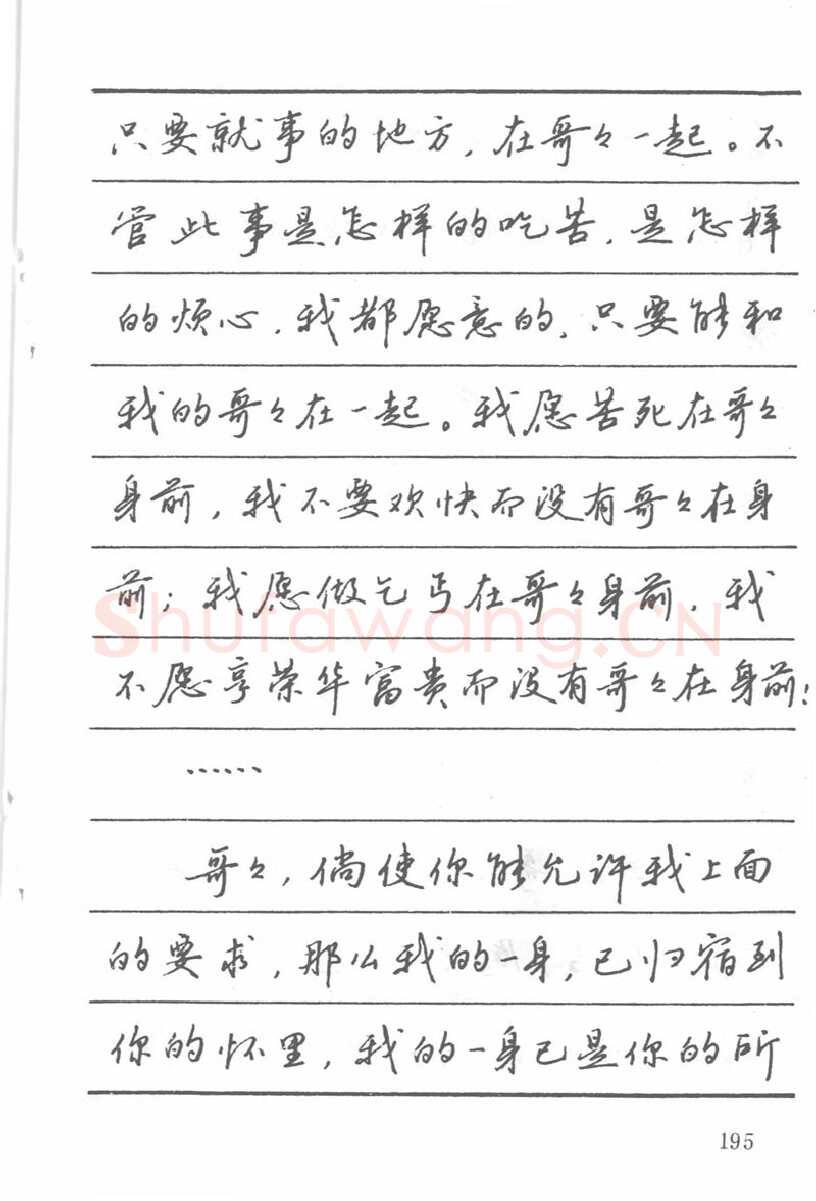 只要就事的地方，在哥々一起。不
管此事是怎样的吃苦，是怎样
的烦心，我都愿意的，只要能和
我的哥々在一起。我愿苦死在哥々
身前，我不要欢快而没有哥々在身
前；我愿做乞丐在哥々身前，我
不愿享荣华富贵而没有哥々在身前；
……
哥々，倘使你能允许我上面
的要求，那么我的一身，已归宿到
你的怀里，我的一身已是你的所
195
Shufawang.CN